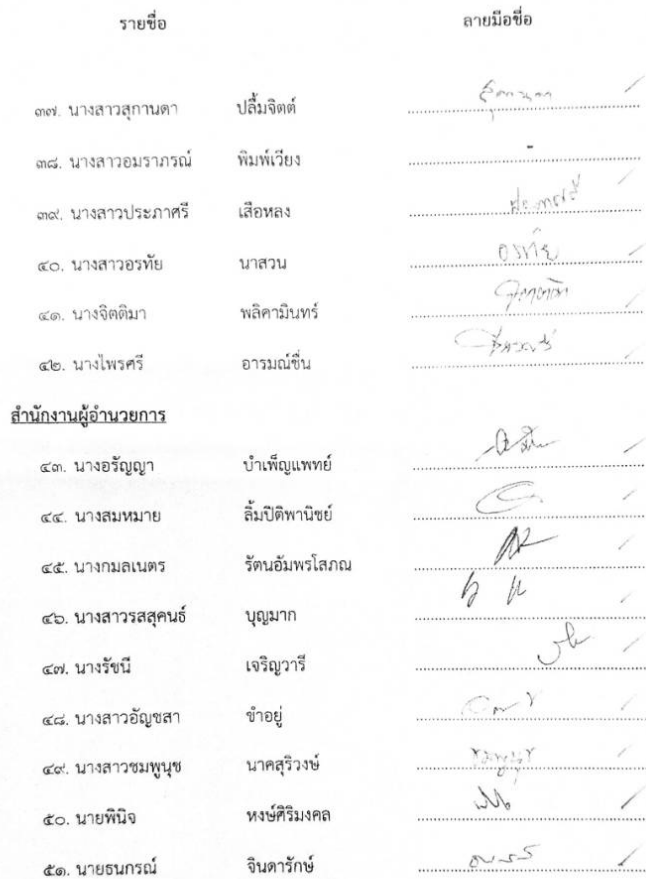 รายชื่อ ลายมือชื่อ
๓๗. นางสาวสุกานดา ปลื้มจิตต์ สุกานดา
๓๘. นางสาวอมราภรณ์ พิมพ์เวียง -
๓๙. นางสาวประภาศรี เสือหลง ประภาศรี
๔๐. นางสาวอรทัย นาสวน อรทัย
๔๑. นางจิตติมา พลิคามินทร์
๔๒. นางไพรศรี อารมณ์ชื่น
สำนักงานผู้อำนวยการ
๔๓. นางอรัญญา บำเพ็ญแพทย์
๔๔. นางสมหมาย ลิ้มปิติพานิชย์
๔๕. นางกมลเนตร รัตนอัมพรโสภณ
๔๖. นางสาวรสสุคนธ์ บุญมาก
๔๗. นางรัชนี เจริญวารี
๔๘. นางสาวอัญชสา ขำอยู่
๔๙. นางสาวชมพูนุช นาคสุริวงษ์ ชมพูนุช
๕๐. นายพินิจ หงษ์ศิริมงคล
๕๑. นายธนกรณ์ จินดารักษ์